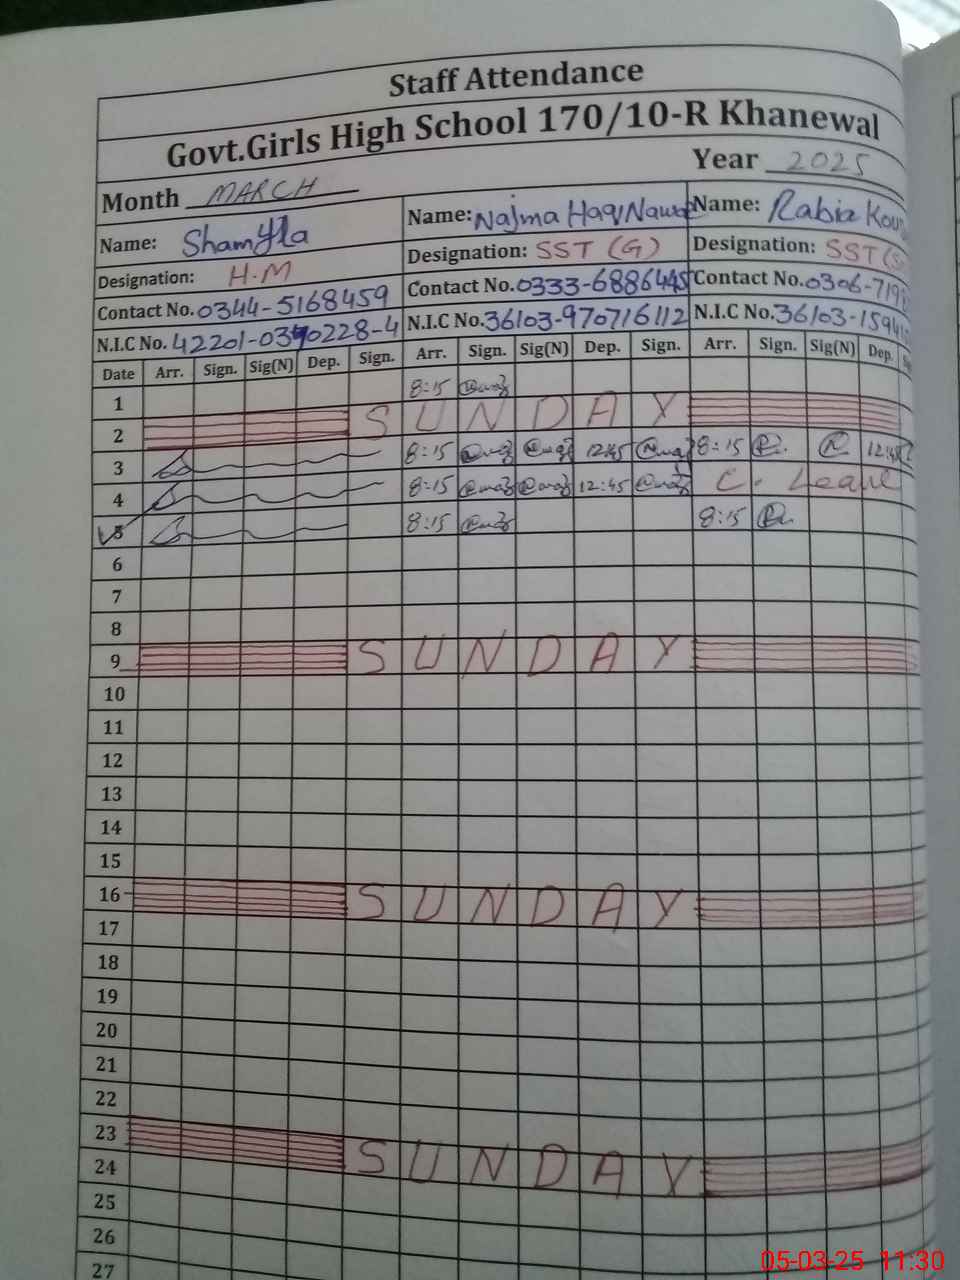 Staff Attendance
Govt.Girls High School 170/10-R Khanewal
Month MARCH Year 2025
Name: Shamyla Name: Najma Haq Nawaz Name: Rabia
Designation: H.M Designation: SST (G) Designation: SST
Contact No. 0344-5168459 Contact No. 0333-6886445 Contact No. 0306-719
N.I.C No. 42201-0340228-4 N.I.C No. 36103-970716112 N.I.C No. 36103-1594
Date Arr. Sign. Sig(N) Dep. Sign. Arr. Sign. Sig(N) Dep. Sign. Arr. Sign. Sig(N) Dep.
1 8:15
2 SUNDAY
3 8:15 12:45 8:15 12:45
4 8:15 12:45 C. Leave
5 8:15 8:15
6
7
8
9 SUNDAY
10
11
12
13
14
15
16 SUNDAY
17
18
19
20
21
22
23 SUNDAY
24
25
26
27
05-03-25 11:30